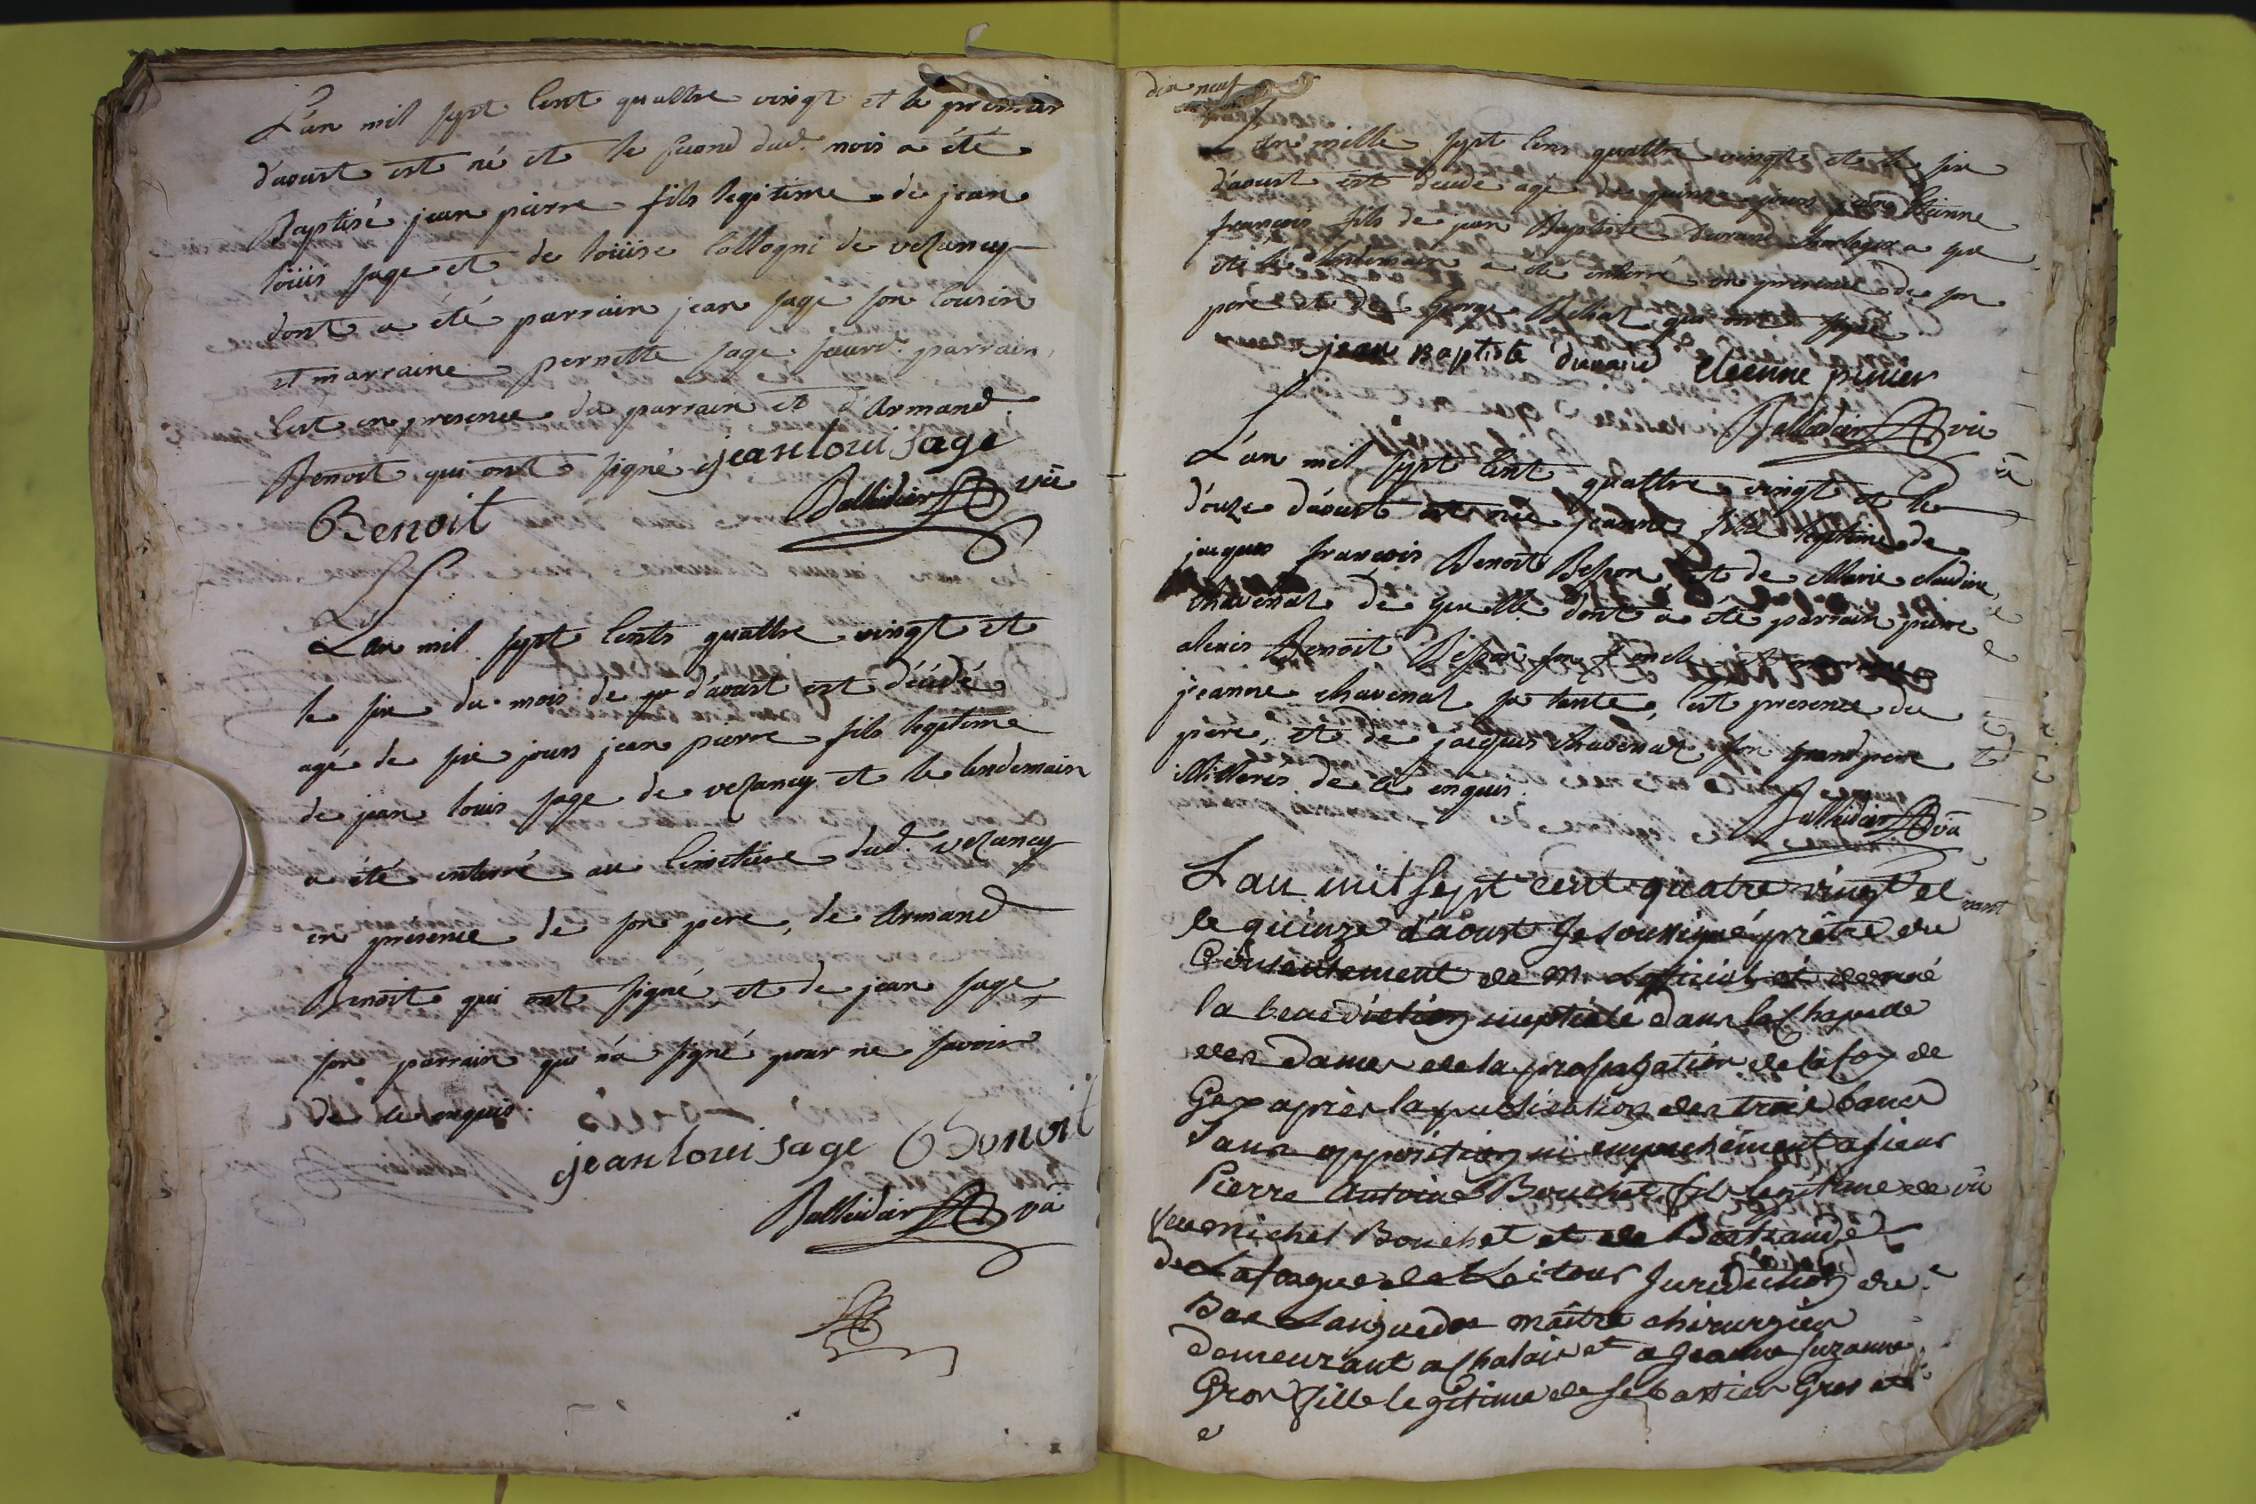 L'an mil sept Cent quattre vingt et le premier
d'aoust est né et le second dud. mois a été
Baptisé jean pierre fils legitime de jean
loüis sage et de loüise Collogni de veZancy
dont a été parrain jean sage son Cousin
et marraine pernette sage parrain,
C'est en presence du parrain et d'Armand
Benoit qui ont signé jean loui sage
Benoit Ballidier vic
L'an mil sept Cents quattre vingt et
le six du mois de d'aoust est décédé
agé de six jours jean pierre fils legitime
de jean louis sage de veZancy et le lendemain
a été enterré au Cimetiere dud. veZancy
en presence de son pere, de Armand
Benoit qui ont signé, et de jean sage
son parrain qui n'a signé pour ne savoir
de ce enquis.
jean loui sage Benoit
Ballidier vic
dix neuf
L'an mille sept Cens quattre vingt et le six
d'aoust est décédé agé de quinze jours jean Etienne
françois fils de jean Baptiste Durand horloger a gex
et le lendemain a été enterré en presence de son
pere et de George Béchat qui ont signé
jean Baptiste durand Etienne
Ballidier vic
L'an mil sept Cent quattre vingt et le
d'ouze d'aoust est née jeanne fille legitime de
jacques françois Benoit Besson et de Marie claudine
chavenat de dont a été parrain pierre
alexis Benoit Besson son et marraine
jeanne chavenat sa tante, C'est presence du
pére, et de jacques chavenat son grand pere
illitteres de ce enquis.
Ballidier vic
L'an mil sept cent quatre vingt et
le quinze d'aoust Je soussigné prêtre du
Consentement de M. L'official et donné
la benediction nuptiale dans la Chapelle
des Dames de la propagation de la foy de
Gex après la publication des trois bancs
sans opposition ni empechement a sieur
Pierre Antoine Bouchet fils legitime de
feu Michel Bouchet et de Bertrande
de Lafargue de Leitour Juridiction de
Bas Languedoc maître chirurgien
demeurant a Chalais et a Jeanne Suzanne
Gros fille legitime de Sebastien Gros et